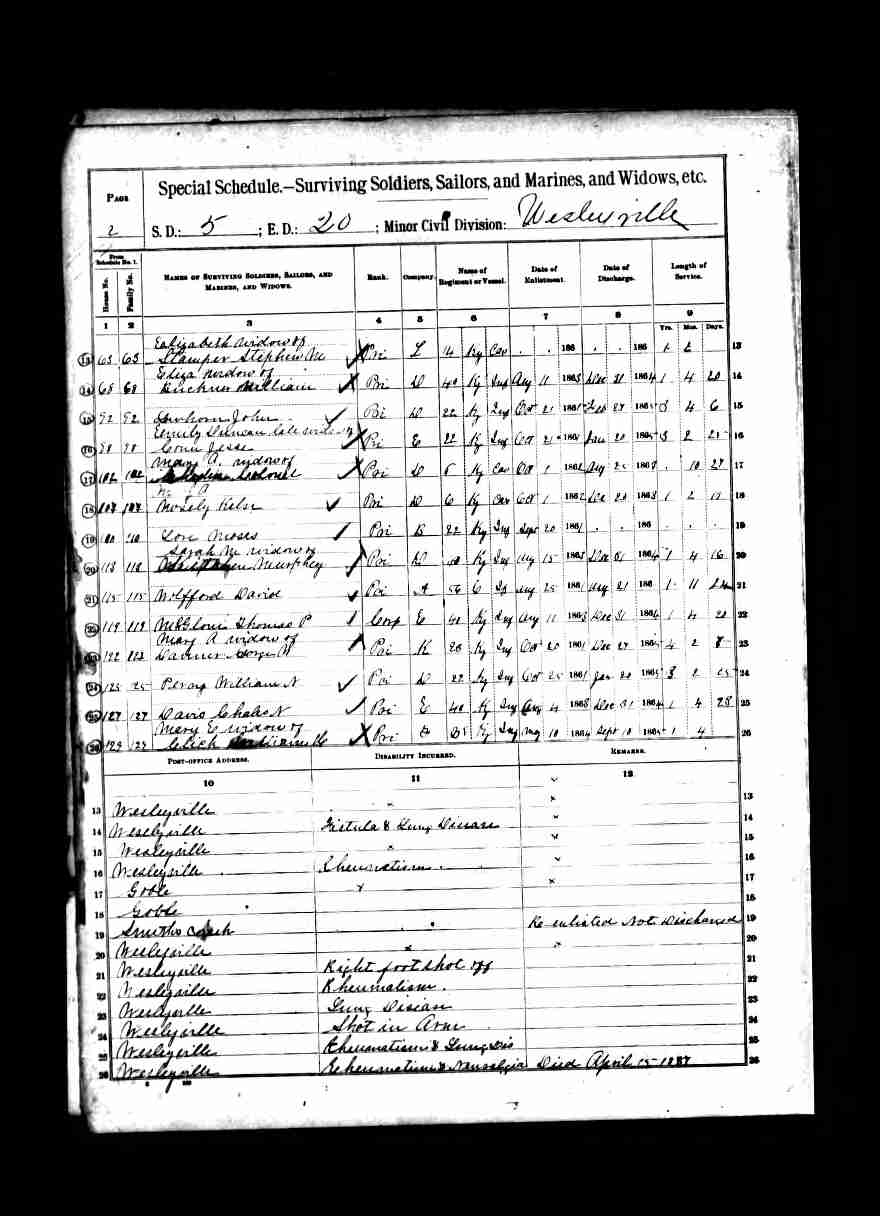 Page 2
Special Schedule.—Surviving Soldiers, Sailors, and Marines, and Widows, etc.
S. D.: 5 ; E. D.: 20 ; Minor Civil Division: Wesleyville
From Schedule No. 1.
House No. Family No. Names of Surviving Soldiers, Sailors, and Marines, and Widows. Rank. Company. Name of Regiment or Vessel. Date of Enlistment. Date of Discharge. Length of Service.
1 2 3 4 5 6 7 8 9
Yrs. Mos. Days.
Elizabeth widow of
13 65 65 Stamper Stephen M Pri L 14 Ky Cav 186 186 13
Eliza widow of
14 68 68 William Pri D 40 Ky Inf Aug 11 1863 Dec 31 1864 1 4 20 14
15 92 92 John Pri D 22 Ky Inf Oct 21 1861 4 6 15
Emily Duncan late widow of
16 98 98 Jesse Pri E 22 Ky Inf Oct 21 1861 Jan 20 1865 3 2 16
Mary A. widow of
17 102 102 Pri D Ky Cav Oct 1 1862 Aug 1863 10 27 17
18 107 107 Mosely Pri D 6 Ky Cav Oct 1 1862 Dec 1863 1 2 18
19 110 110 Moses Pri B 22 Ky Inf Sept 20 1861 186 19
Sarah M widow of
20 113 Murphey Pri D 40 Ky Inf Aug 15 1863 Dec 31 1864 1 4 16 20
21 115 115 Wolfford David Pri A 56 Aug 25 1861 Aug 21 186 1 11 21
22 119 119 McGlone Thomas P Corp E 40 Ky Inf Aug 11 1863 Dec 31 1864 1 4 20 22
Mary A widow of
23 122 122 Pri K Ky Inf Oct 20 1861 Dec 27 1865 4 2 8 23
24 125 25 William N Pri D 22 Ky Inf Oct 25 1861 Jan 20 1865 3 2 25 24
25 127 127 Davis Pri E 40 Ky Inf Aug 4 1863 Dec 31 1864 1 4 28 25
Mary E widow of
26 129 129 Click Pri Ky Inf May 10 1864 Sept 10 1865 1 4 26
Post-Office Address. Disability Incurred. Remarks.
10 11 12
13 Wesleyville 13
14 Wesleyville Fistula & Lung Disease 14
15 Wesleyville 15
16 Wesleyville Rheumatism 16
17 Goble 17
18 Goble 18
19 Smiths Re enlisted Not Discharged 19
20 Wesleyville 20
21 Wesleyville Right foot shot off 21
22 Wesleyville Rheumatism. 22
23 Wesleyville Lung Disease 23
24 Wesleyville Shot in Arm 24
25 Wesleyville Rheumatism & Lung Dis 25
26 Wesleyville Rheumatism & Neuralgia Died April 15 1887 26